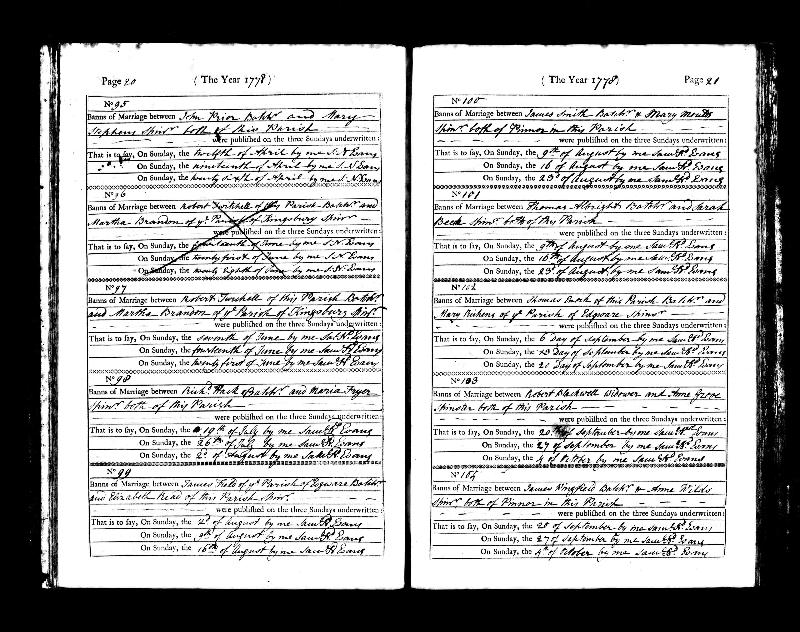 Page 20 ( The Year 1778 )
No 95
Banns of Marriage between John Prior Batchr and Mary
Stephens Spinr both of this Parish
were published on the three Sundays underwritten:
That is to say, On Sunday, the twelfth of April by me S. N Evans
On Sunday, the nineteenth of April by me S N Evans
On Sunday, the twenty sixth of April by me S. N Evans
No 96
Banns of Marriage between Robert Twitchell of this Parish Batchr and
Martha Brandon of ye Parish of Kingsbury Spinr
were published on the three Sundays underwritten:
That is to say, On Sunday, the fourteenth of June by me S. N. Evans
On Sunday, the twenty first of June by me S. N Evans
On Sunday, the twenty eighth of June by me S. N. Evans
No 97
Banns of Marriage between Robert Twichell of this Parish Batchr
and Martha Brandon of ye Parish of Kingsbury Spinr
were published on the three Sundays underwritten:
That is to say, On Sunday, the seventh of June by me Evans
On Sunday, the fourteenth of June by me Saml Evans
On Sunday, the twenty first of June by me Saml Evans
No 98
Banns of Marriage between Richd Batchr and Maria Fryer
Spinr both of this Parish
were published on the three Sundays underwritten:
That is to say, On Sunday, the 19th of July by me Saml Evans
On Sunday, the 26th of July by me Saml Evans
On Sunday, the 2d of August by me Saml Evans
No 99
Banns of Marriage between James Hall of ye Parish of Edgware Batchr
and Elizabeth Read of this Parish Spinr
were published on the three Sundays underwritten:
That is to say, On Sunday, the 2d of August by me Saml Evans
On Sunday, the 9th of August by me Saml Evans
On Sunday, the 16th of August by me Saml Evans
( The Year 1778 ) Page 21
No 100
Banns of Marriage between James Smith Batchr & Mary
Spinr both of Pinnor in this Parish
were published on the three Sundays underwritten:
That is to say, On Sunday, the 9th of August by me Saml Evans
On Sunday, the 16 of August by me Saml Evans
On Sunday, the 23d of August by me Saml Evans
No 101
Banns of Marriage between Thomas Albright Batchr and Sarah
Beck Spinr both of this Parish
were published on the three Sundays underwritten:
That is to say, On Sunday, the 9th of August by me Saml Evans
On Sunday, the 16th of August by me Saml Evans
On Sunday, the 23d of August by me Saml Evans
No 102
Banns of Marriage between Thomas of this Parish Batchr and
Mary of ye Parish of Edgware Spinr
were published on the three Sundays underwritten:
That is to say, On Sunday, the 6 Day of September by me Saml Evans
On Sunday, the 13 Day of September by me Saml Evans
On Sunday, the 20 Day of September by me Saml Evans
No 103
Banns of Marriage between Robert Blackwell Widower and Anne Grove
Spinster both of this Parish
were published on the three Sundays underwritten:
That is to say, On Sunday, the 20 September by me Saml Evans
On Sunday, the 27 of September by me Saml Evans
On Sunday, the 4 of October by me Saml Evans
No 104
Banns of Marriage between James Kingfield Batchr & Anne Wilds
Spinr both of Pinnor in this Parish
were published on the three Sundays underwritten:
That is to say, On Sunday, the 20 of September by me Saml Evans
On Sunday, the 27 of September by me Saml Evans
On Sunday, the 4th of October by me Saml Evans